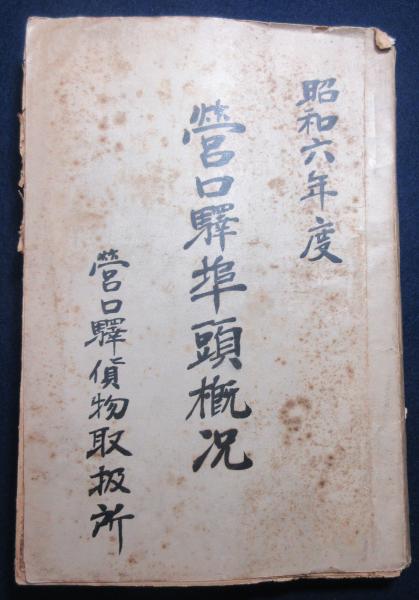 昭和六年度
營口驛埠頭概況
營口驛貨物取扱所